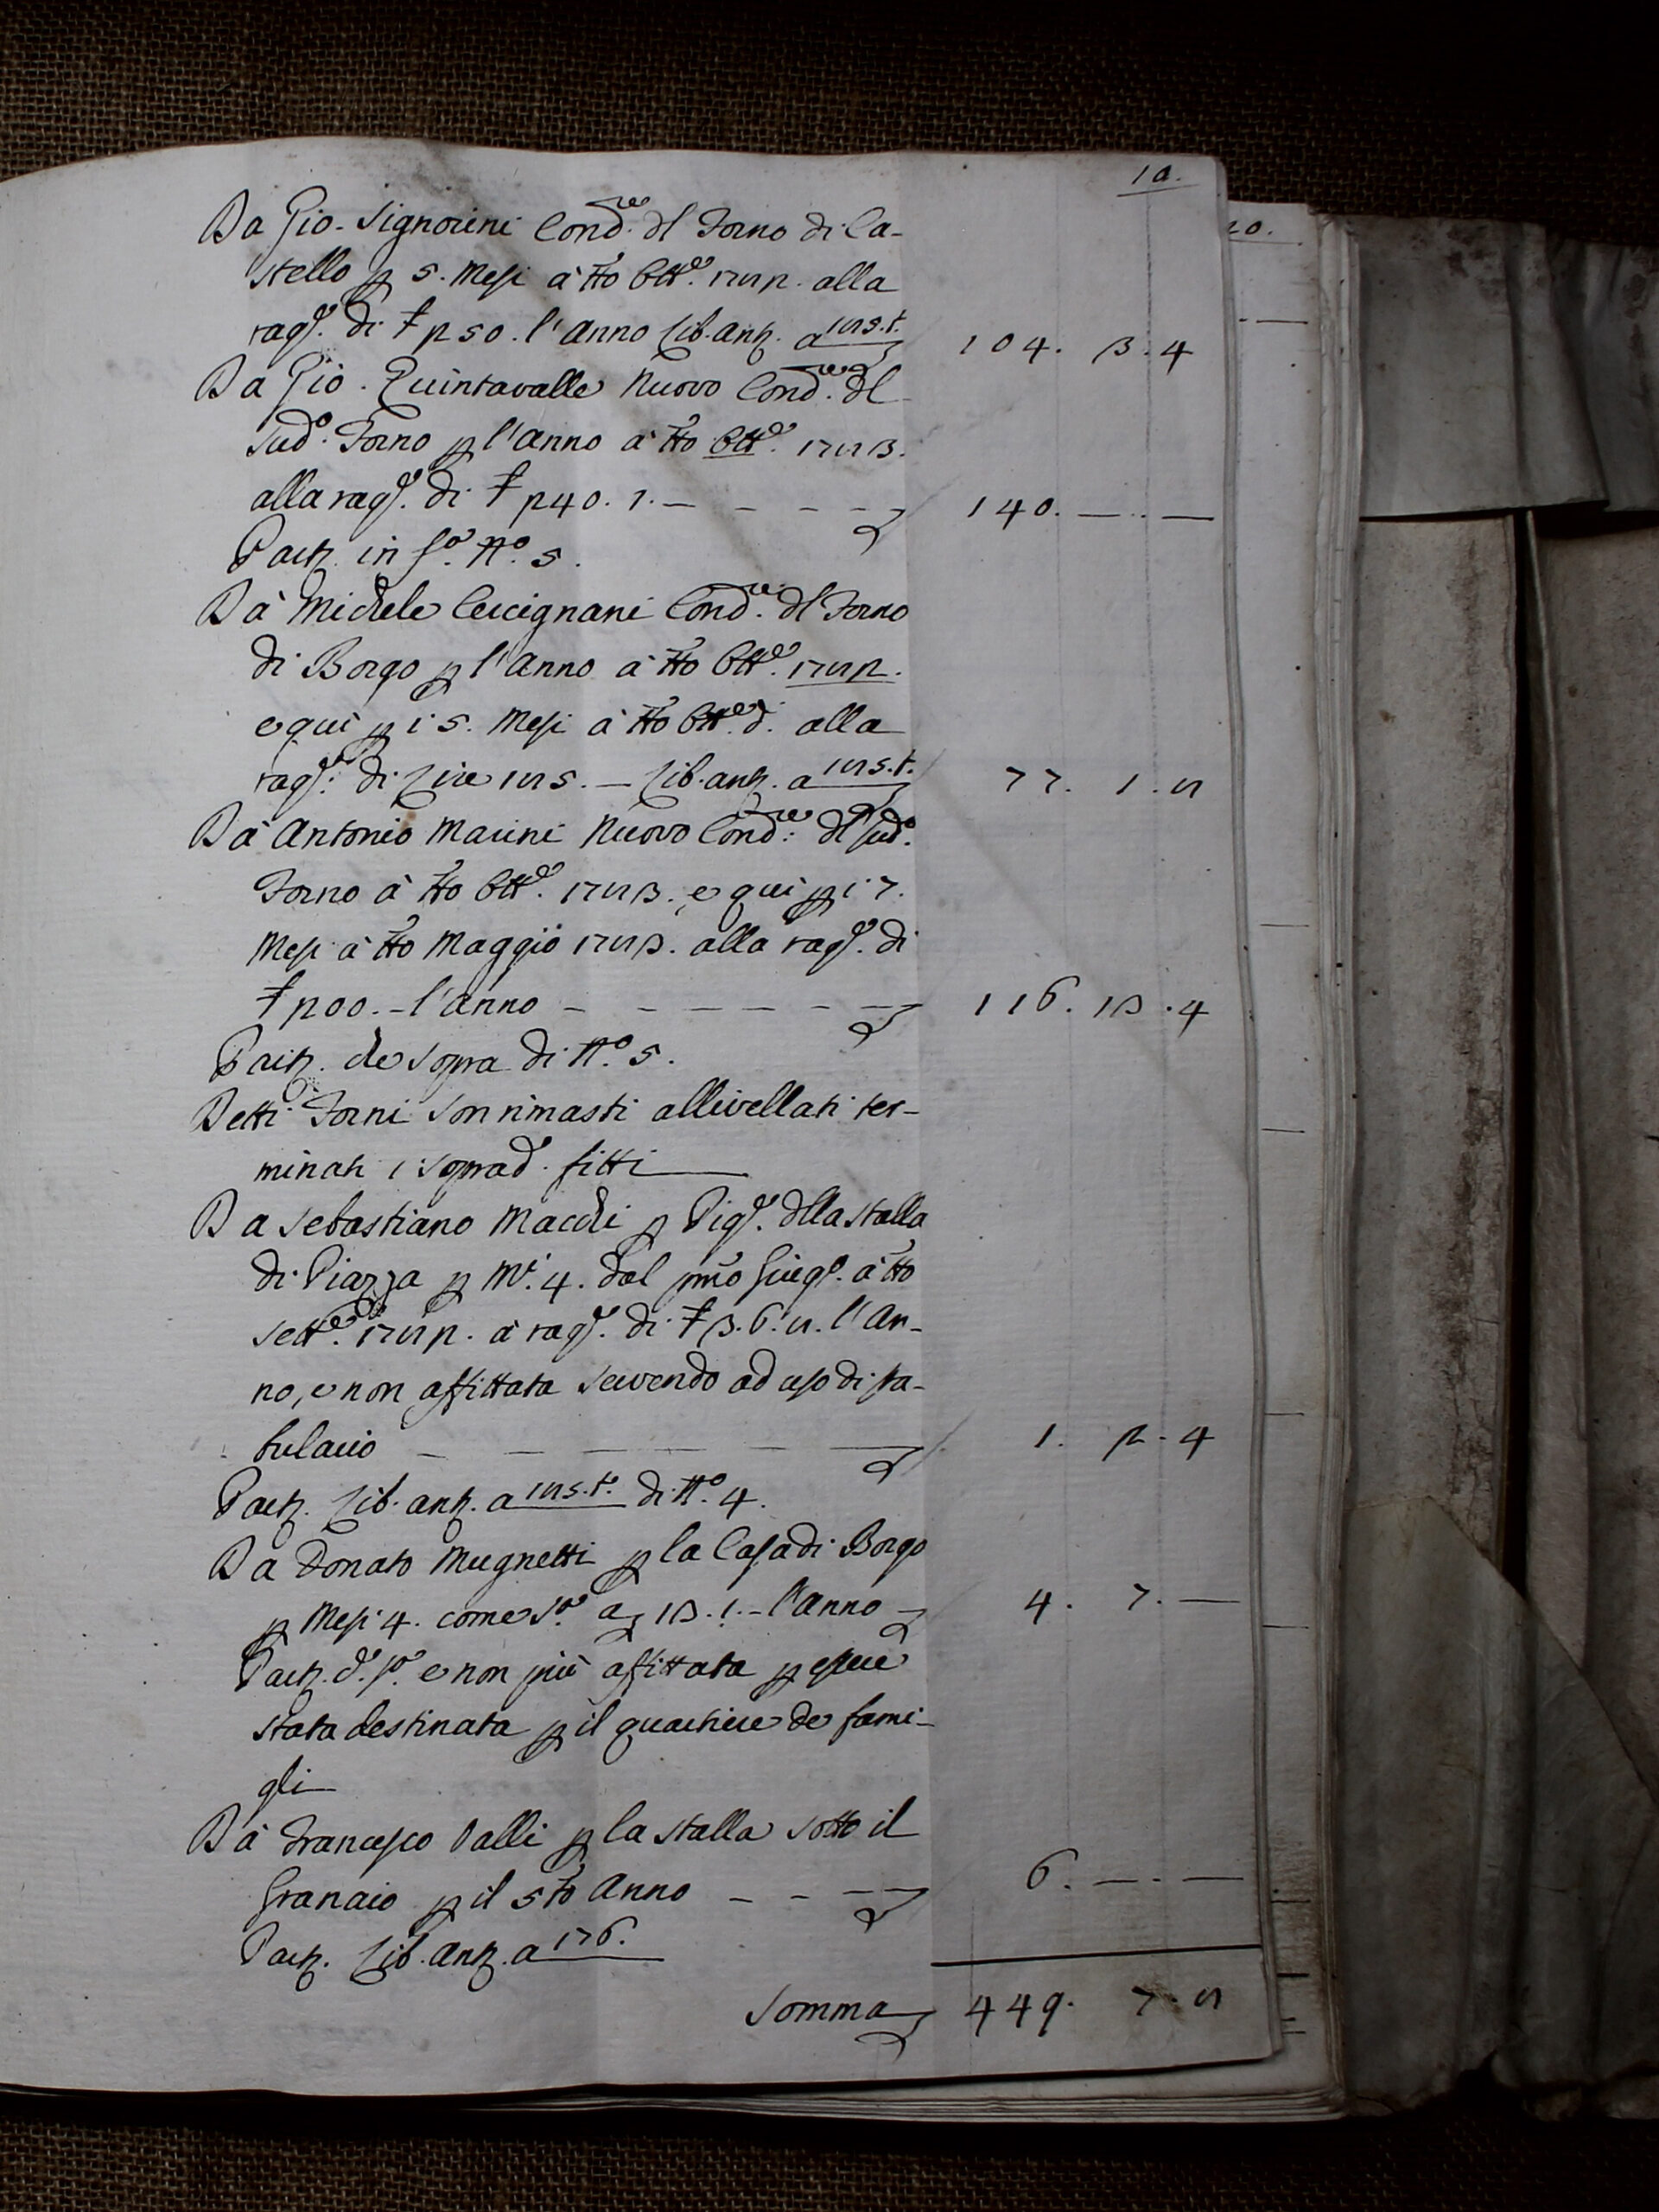 19.
Da Gio. Signorini Cond.re dl Forno di Ca-
stello p 5. Mesi à tto Ott.e 1782. alla
rag.e di £ 250. l'Anno Lib. anz. a 185.t. 104. 3. 4
Da Gio. Quintavalle Nuovo Cond.re dl
sud.o Forno p l'Anno à tto Ott.e 1783.
alla rag.e di £ 240. 1. — - - - - 140. — . —
Part. in f.o N.o 5.
Dà Michele Cercignani Cond.re dl Forno
di Borgo p l'Anno à tto Ott.e 1782.
e qui p i 5. Mesi à tto Ott.e d. alla
rag.e di Lire 185. — Lib. anz. a 185.t. 77. 1. 8
Dà Antonio Marini Nuovo Cond.re dl sud.o
Forno à tto Ott.e 1783. e qui p i 7.
Mesi à tto Maggio 1783. alla rag.e di
£ 200. - l'Anno - - - - - - - 116. 13. 4
Part. de sopra di N.o 5.
Detti Forni son rimasti allivellati ter-
minati i soprad. fitti
Da Sebastiano Macchi p Pig.e dlla stalla
di Piazza p M.i 4. dal pmo Giug.o à tto
Sett.e 1782. à rag.e di £ 3. 6. 8. l'An-
no, e non affittata servendo ad uso di sta-
bulario - — — — — 1. 2. 4
Part. Lib. anz. a 185.t. di N.o 4.
Da Donato Mugnetti p la Casa di Borgo
p Mesi 4. come s.a a 13. 1. - l'anno 4. 7. —
Part. d.o f.o e non più affittata p essere
stata destinata p il quartiere de fami-
gli
Dà Francesco Valli p la stalla sotto il
Granaio p il 5 tto Anno - - — — 6. — . —
Part. Lib. Anz. a 176.
Somma 449. 7. 8
20.